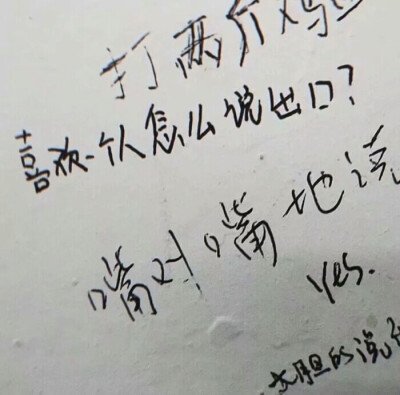 打两个鸡蛋
喜欢一个人怎么说出口?
嘴对嘴地说
yes.
大胆的说